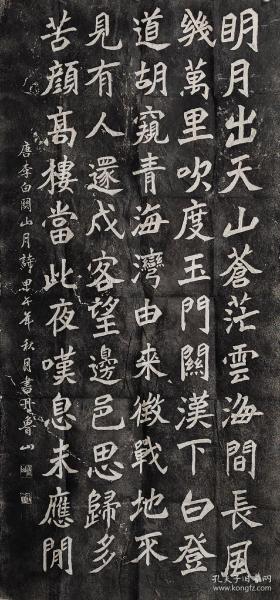 明月出天山蒼茫雲海間長風
幾萬里吹度玉門關漢下白登
道胡窺青海灣由來徵戰地不
見有人還戍客望邊邑思歸多
苦顏高樓當此夜嘆息未應閒
唐李白關山月詩甲午年秋月書丹魯山
孔夫子旧书网